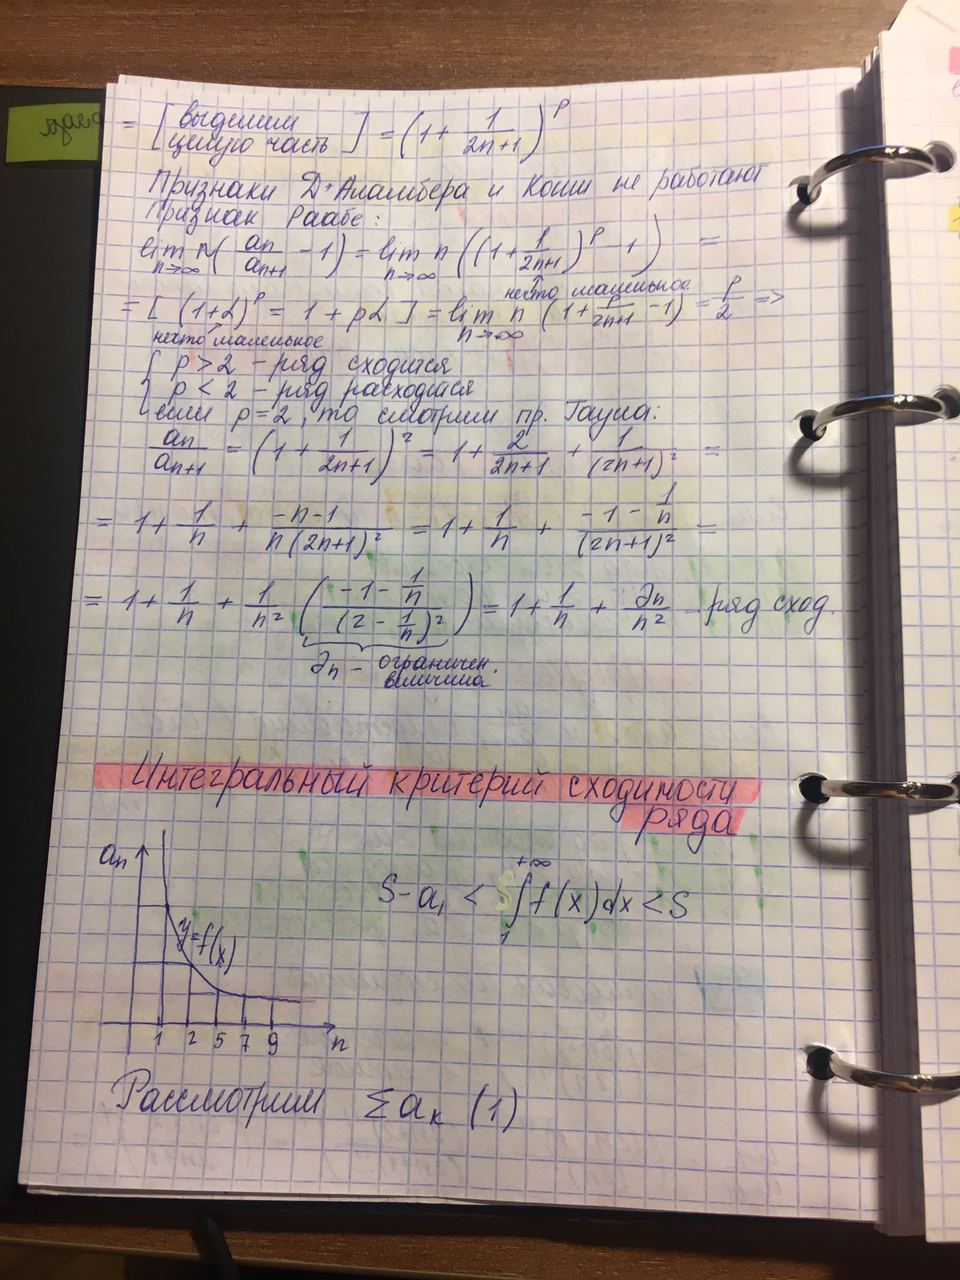 ряда
= [выделим целую часть] = (1 + 1/(2n+1))^p
Признаки Д'Аламбера и Коши не работают
Признак Раабе:
lim n→∞ n(an/an+1 - 1) = lim n→∞ n((1 + 1/(2n+1))^p - 1) =
нечто маленькое
= [(1+α)^p = 1 + pα] = lim n→∞ n(1 + p/(2n+1) - 1) = p/2 =>
нечто маленькое
{ p > 2 - ряд сходится
p < 2 - ряд расходится
если p = 2, то смотрим пр. Гаусса:
an/an+1 = (1 + 1/(2n+1))² = 1 + 2/(2n+1) + 1/(2n+1)² =
= 1 + 1/n + (-n-1)/(n(2n+1)²) = 1 + 1/n + (-1 - 1/n)/(2n+1)² =
= 1 + 1/n + 1/n² ((-1 - 1/n)/(2 - 1/n)²) = 1 + 1/n + ∂n/n² ряд сход.
∂n - ограничен. величина
Интегральный критерий сходимости
ряда
an
S - a1 < ∫₁^{+∞} f(x)dx < S
y=f(x)
1 2 5 7 9 n
Рассмотрим Σak (1)